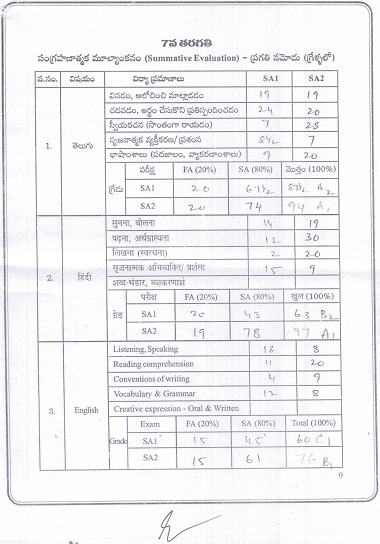 7వ తరగతి
సంగ్రహణాత్మక మూల్యాంకనం (Summative Evaluation) – ప్రగతి నమోదు (గ్రేళ్ళలో)
వ.సం. విషయం విద్యా ప్రమాణాలు SA1 SA2
1. తెలుగు
వినడం, ఆలోచించి మాట్లాడడం 19 19
చదవడం, అర్థం చేసుకొని ప్రతిస్పందించడం 24 20
స్వీయరచన (సొంతంగా రాయడం) 7 25
సృజనాత్మక వ్యక్తీకరణ/ ప్రశంస 8½ 7
భాషాంశాలు (పదజాలం, వ్యాకరణాంశాలు) 9 20
గ్రేడు పరీక్ష FA (20%) SA (80%) మొత్తం (100%)
SA1 20 67½ 87½ A2
SA2 20 74 94 A1
2. हिंदी
सुनना, बोलना 14 19
पढ़ना, अर्थग्राह्यता 12 30
लिखना (स्वरचना) 2 20
सृजनात्मक अभिव्यक्ति/ प्रशंसा 15 9
शब्द-भंडार, व्याकरणांश
ग्रेड परीक्षा FA (20%) SA (80%) कुल (100%)
SA1 20 43 63 B2
SA2 19 78 97 A1
3. English
Listening, Speaking 18 8
Reading comprehension 11 20
Conventions of writing 4 9
Vocabulary & Grammar 12 8
Creative expression - Oral & Written
Grade Exam FA (20%) SA (80%) Total (100%)
SA1 15 45 60 C1
SA2 15 61 76 B1
9